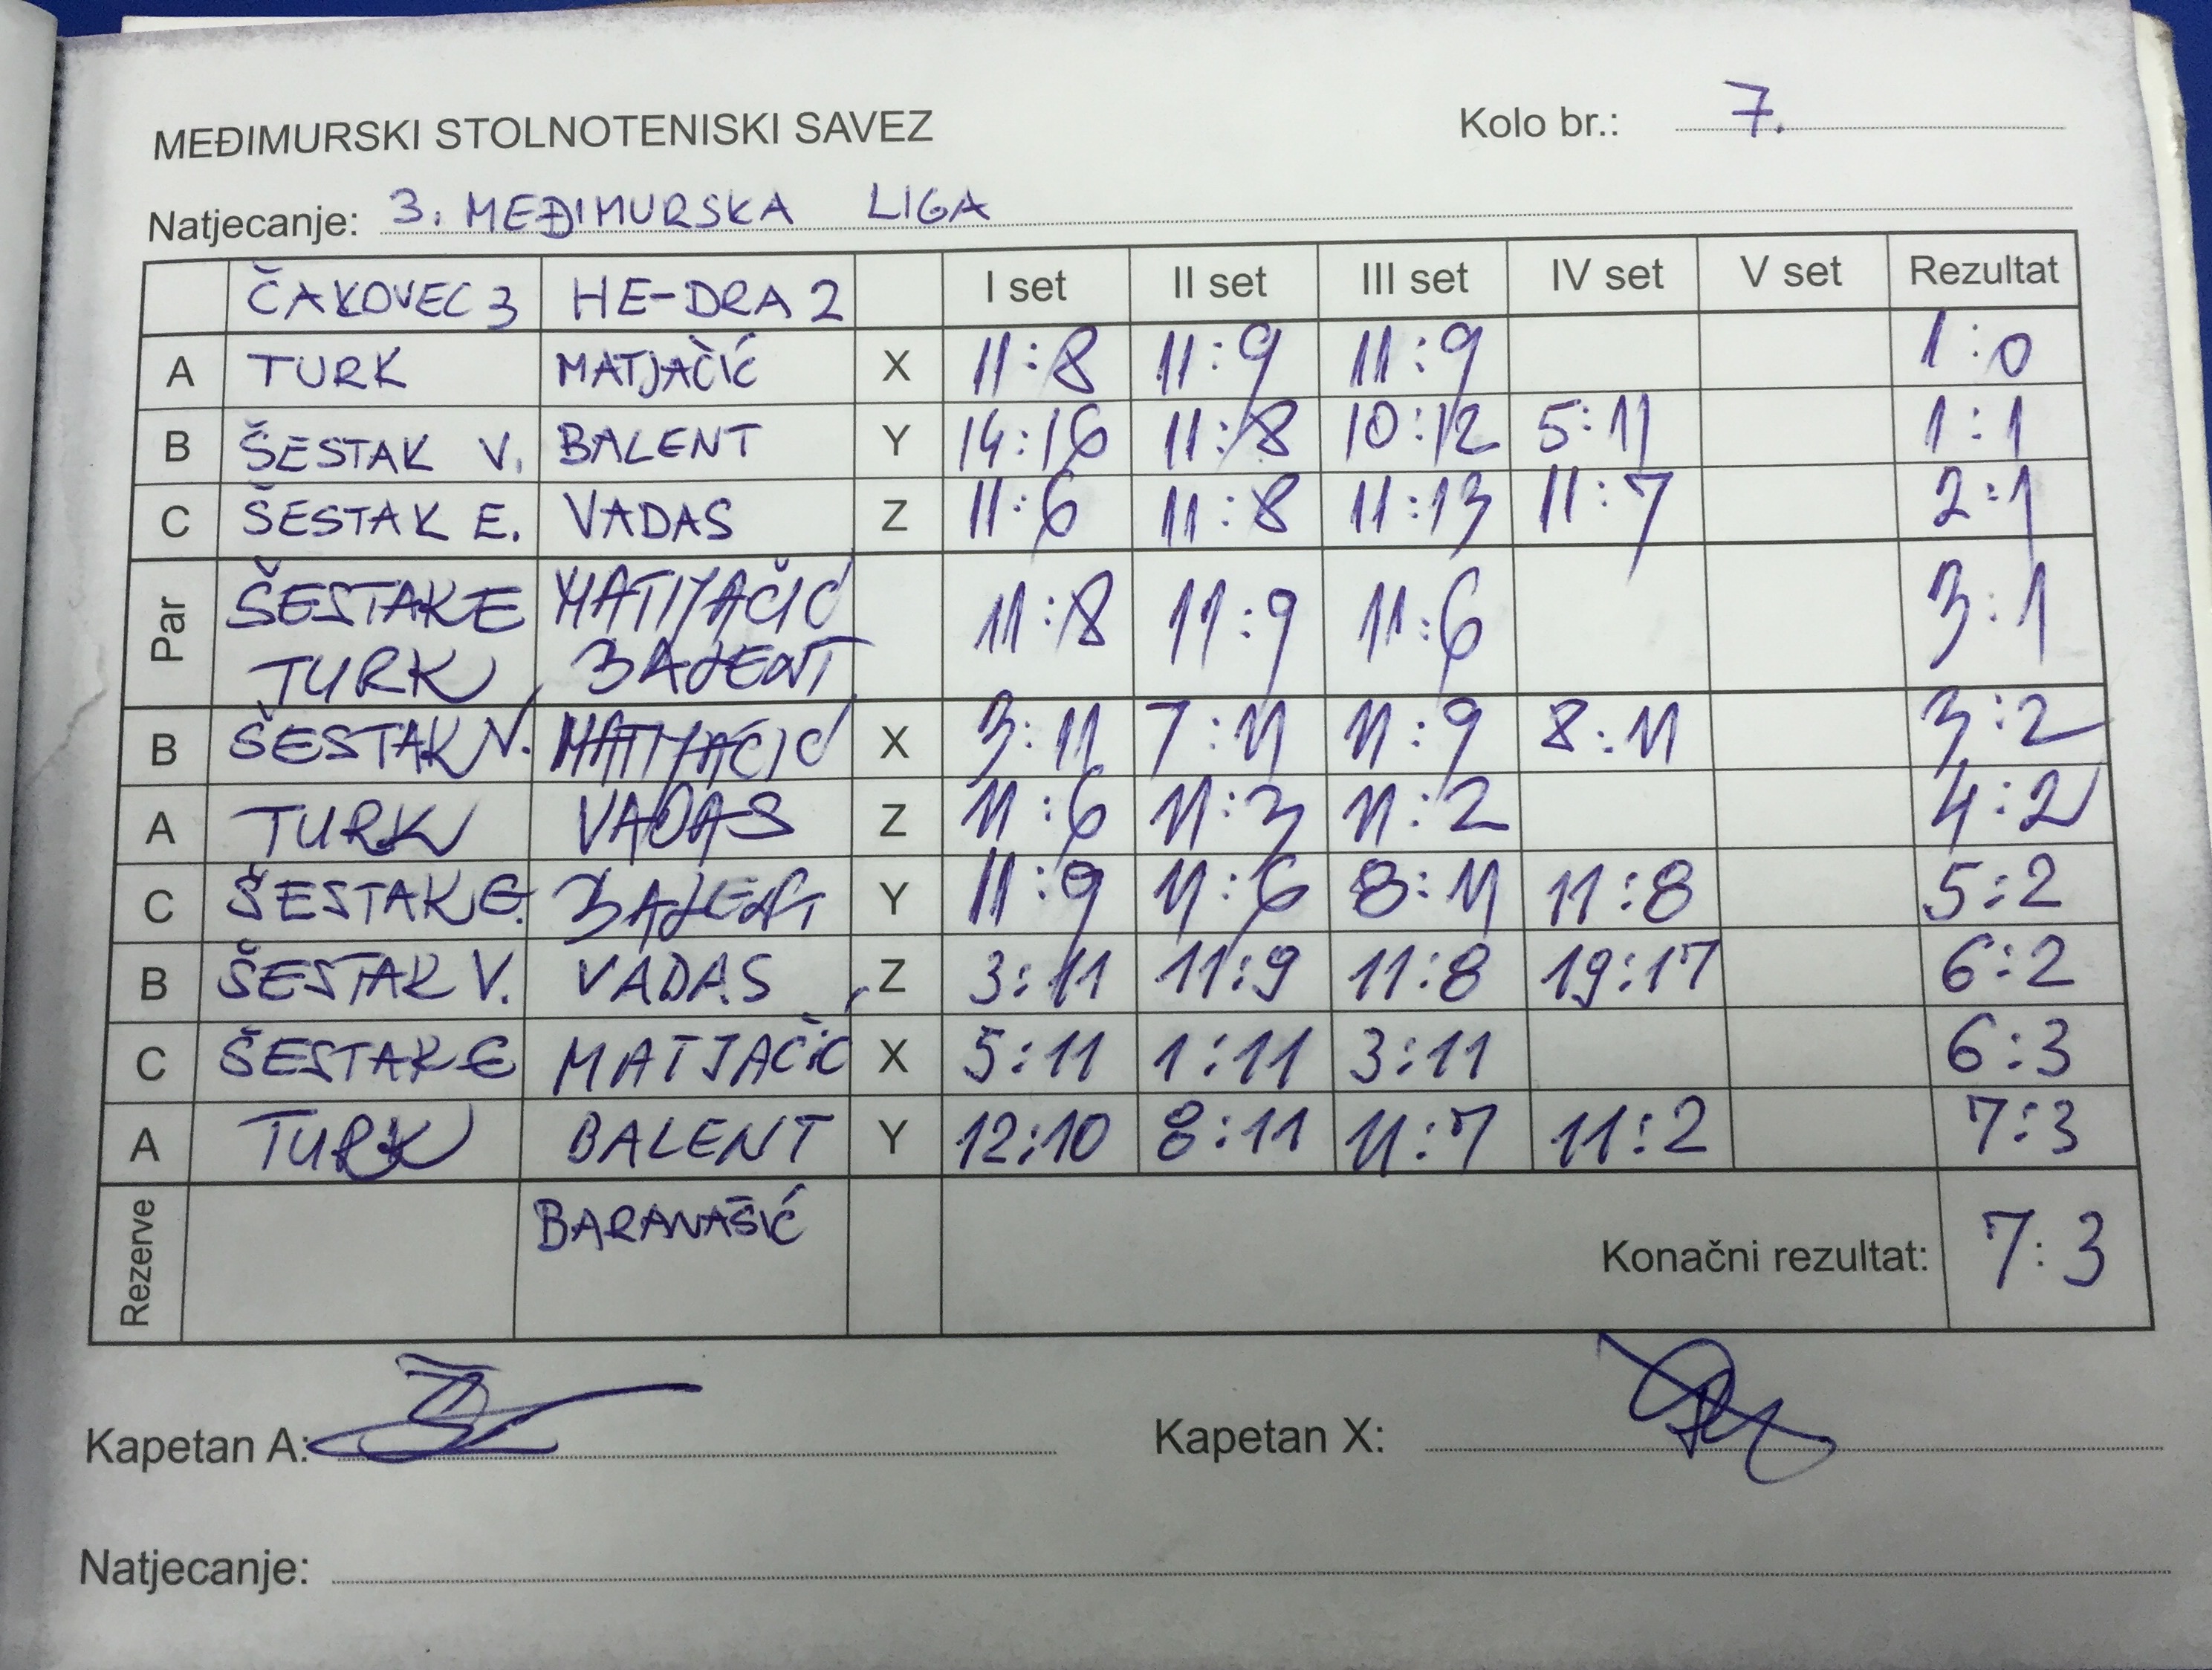 MEĐIMURSKI STOLNOTENISKI SAVEZ Kolo br.: 7.
Natjecanje: 3. MEĐIMURSKA LIGA
ČAKOVEC 3 HE-DRA 2 I set II set III set IV set V set Rezultat
A TURK MATJAČIĆ X 11:8 11:9 11:9 1:0
B ŠESTAK V. BALENT Y 14:16 11:8 10:12 5:11 1:1
C ŠESTAK E. VADAS Z 11:6 11:8 11:13 11:7 2:1
Par ŠESTAK E MATIJAČIĆ 11:8 11:9 11:6 3:1
TURK BALENT
B ŠESTAK V. MATIJAČIĆ X 3:11 7:11 11:9 8:11 3:2
A TURK VADAS Z 11:6 11:3 11:2 4:2
C ŠESTAK E. BALENT Y 11:9 11:6 8:11 11:8 5:2
B ŠESTAK V. VADAS Z 3:11 11:9 11:8 19:17 6:2
C ŠESTAK E MATJAČIĆ X 5:11 1:11 3:11 6:3
A TURK BALENT Y 12:10 8:11 11:7 11:2 7:3
Rezerve BARANAŠIĆ Konačni rezultat: 7:3
Kapetan A: Kapetan X:
Natjecanje: